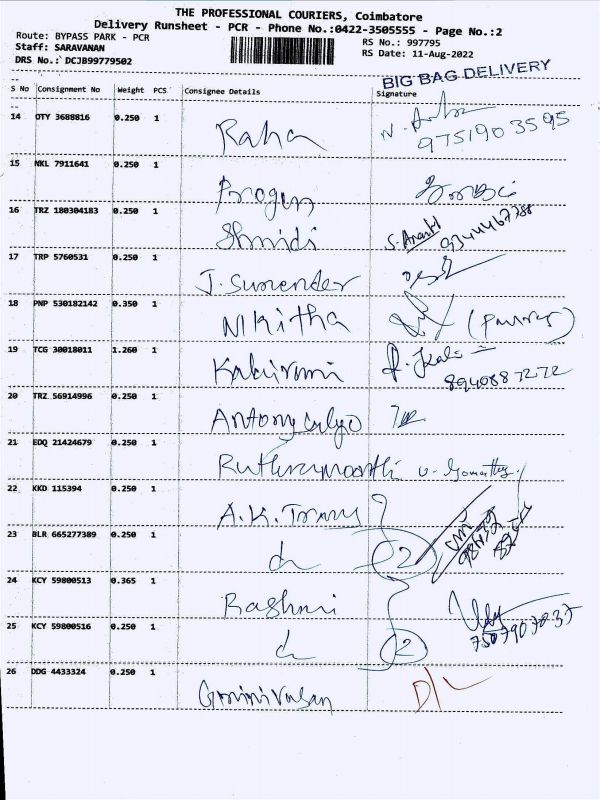 THE PROFESSIONAL COURIERS, Coimbatore
Delivery Runsheet - PCR - Phone No.:0422-3505555 - Page No.:2
Route: BYPASS PARK - PCR
RS No.: 997795
Staff: SARAVANAN
RS Date: 11-Aug-2022
DRS No.: DCJB99779502
BIG BAG DELIVERY
S No Consignment No Weight PCS Consignee Details Signature
14 OTY 3688816 0.250 1
Raha 9751903595
15 NKL 7911641 0.250 1
Pragun
16 TRZ 180304183 0.250 1
Shmidi S. Anand 9344467788
17 TRP 5760531 0.250 1
J. Surrender
18 PNP 530182142 0.350 1
Nikitha
19 TCG 30018011 1.260 1
Kabirami 8940887272
20 TRZ 56914996 0.250 1
Antony
21 EDQ 21424679 0.250 1
Ruthramoorthi
22 KKD 115394 0.250 1
A.K.
23 BLR 665277389 0.250 1
2
24 KCY 59800513 0.365 1
Rashmi
25 KCY 59800516 0.250 1
2 7507907037
26 DDG 4433324 0.250 1
Grinivasan D/L